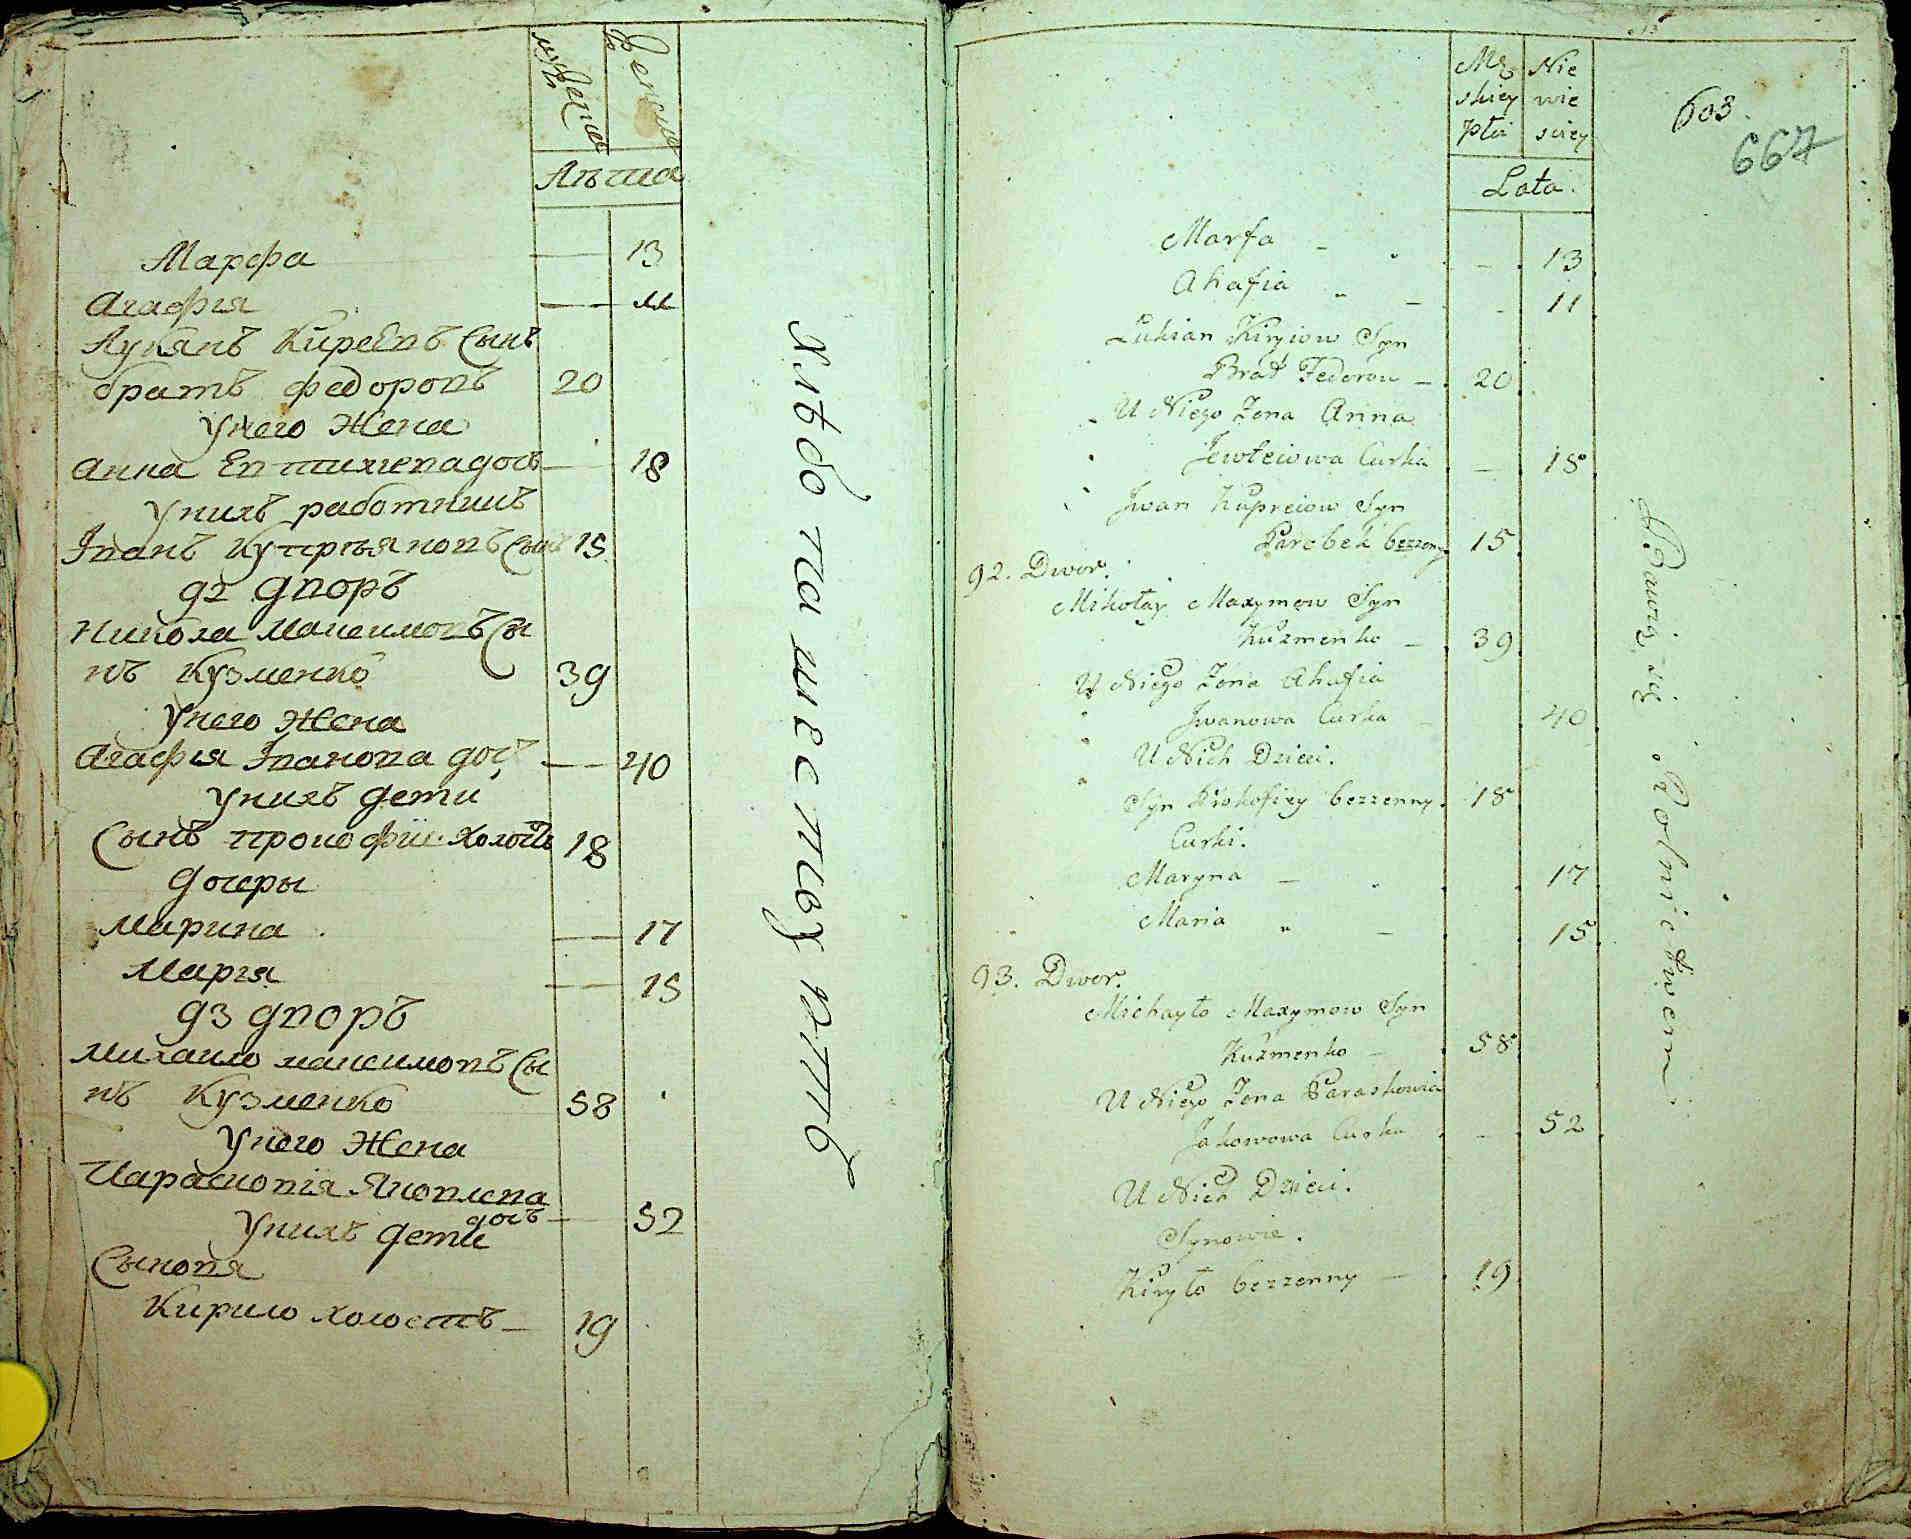 мужеска
женска
Лѣта
Марфа — 13
Агафия — 11
Лукянъ Киреевъ Сынъ
братъ федоровъ 20
У него Жена
Анна Евтихиева дочь — 18
У нихъ работникъ
Іванъ Куприяновъ Сынъ 15
92 дворъ
Никола Максимовъ Сы
нъ Кузменко 39
У него Жена
Агафия Іванова доч — 40
У нихъ дети
Сынъ прокофiи холостъ 18
дочеры
Марина — 17
Мария — 15
93 дворъ
Михаило максимовъ Сы
нъ Кузменко 58
У него Жена
Парасковiя Яковлева
дочъ — 52
У нихъ дети
Сыновя
Кирило холостъ — 19
Хлѣбопашествуютъ
Mę Nie
skiey wie
płci sciey
Lata.
603.
667
Marfa - 13
Ahafia - 11
Lukian Kiryiow Syn
Brat Fedorow - 20
U Niego Zona Anna
Jewteiowa Curka - 18
Jwan Kupreiow Syn
Parobek bezzeny 15
92. Dwor.
Mikołay Maxymow Syn
Kuzmenko - 39
U Niego Zona Ahafia
Jwanowa Curka - 40
U Nich Dzieci.
Syn Prokofiey bezzenny. 18
Curki.
Maryna - 17
Maria - 15
93. Dwor.
Michayło Maxymow Syn
Kuzmenko - 58
U Niego Zona Paraskowia
Jakowowa Curka - 52
U Nich Dzieci.
Synowie.
Kiryło bezzenny - 19
Bawią się Rolnictwem